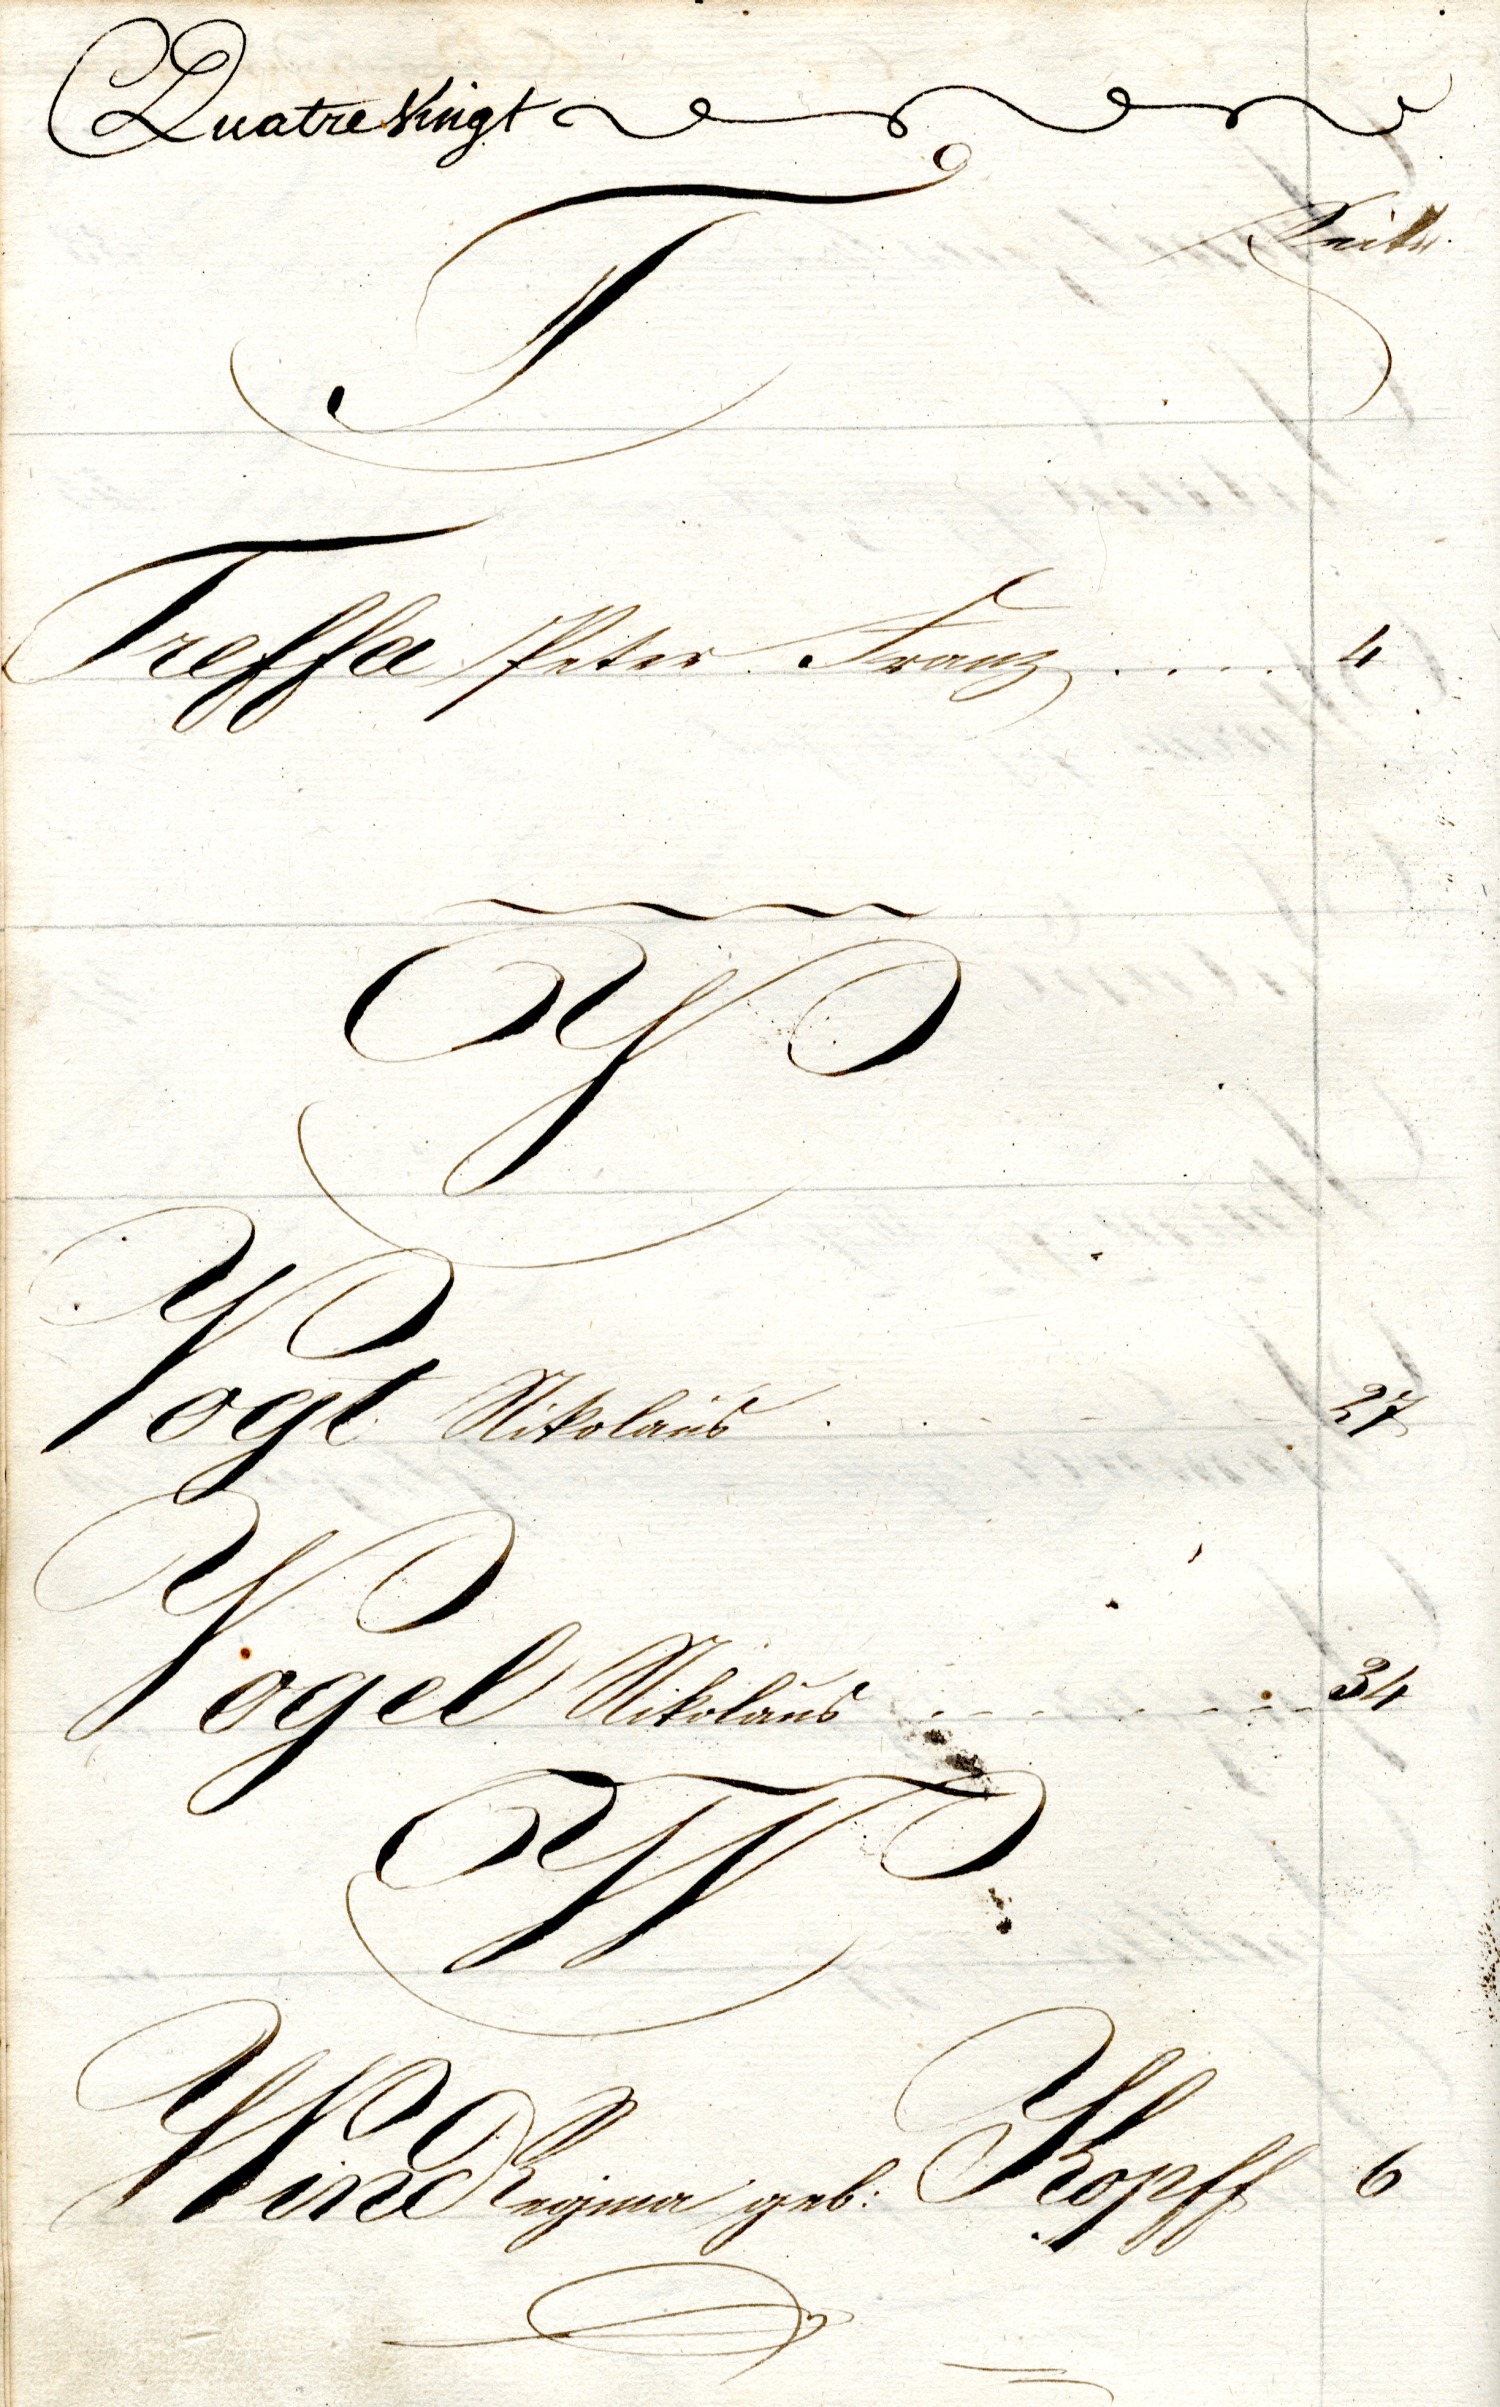 Quatre Vingt
Seite
T
Treffa Peter Franz . . . . 4
V
Vogt Nikolaus . . . . . . 27
Vogel Nikolaus . . . . . . 34
W
Wind Regina geb: Kopff 6